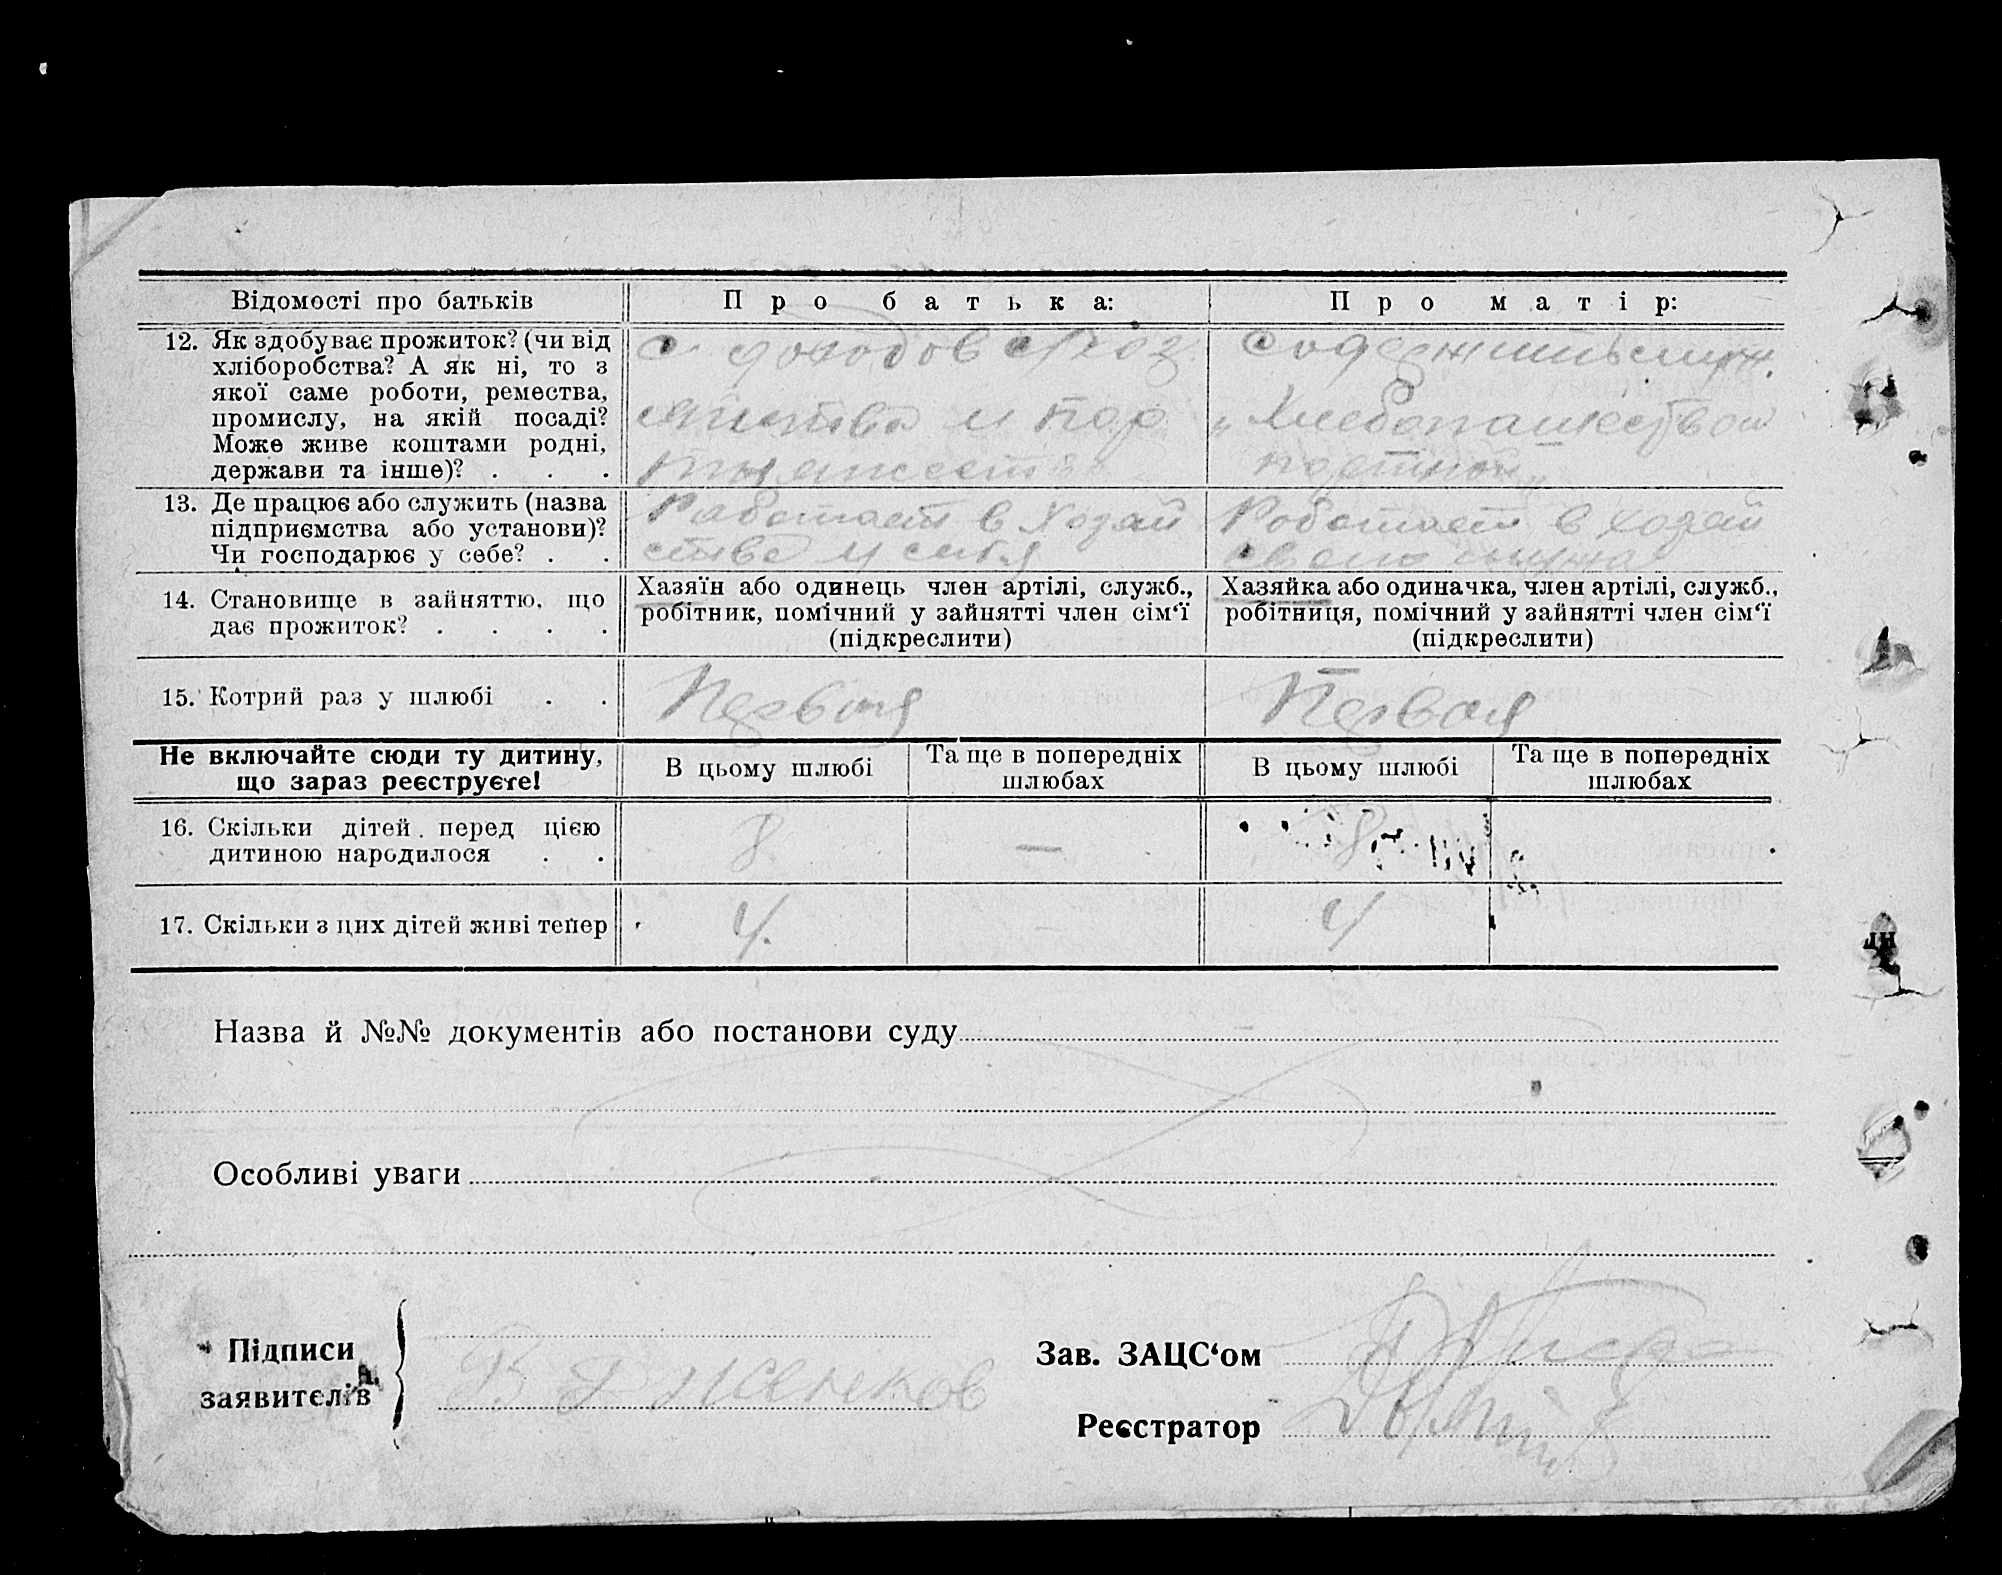 Відомості про батьків
Про батька:
Про матір:
12. Як здобуває прожиток? (чи від
хліборобства? А як ні, то з
якої саме роботи, ремества,
промислу, на якій посаді?
Може живе коштами родні,
держави та інше)? . . .
с. доходов
и пор
Содержить муж.
„Хлебопашеством
13. Де працює або служить (назва
підприємства або установи)?
Чи господарює у себе? . .
Работает в хозяй
стве у себя
Работает в хозяй
своего мужа
14. Становище в зайняттю, що
дає прожиток? . . . .
Хазяїн або одинець член артілі, служб.,
робітник, помічний у зайнятті член сім‘ї
(підкреслити)
Хазяйка або одиначка, член артілі, служб.,
робітниця, помічний у зайнятті член сім‘ї
(підкреслити)
15. Котрий раз у шлюбі . .
Первый
Первая
Не включайте сюди ту дитину,
що зараз реєструєте!
В цьому шлюбі
Та ще в попередніх
шлюбах
В цьому шлюбі
Та ще в попередніх
шлюбах
16. Скільки дітей перед цією
дитиною народилося . .
8
—
8
17. Скільки з цих дітей живі тепер
4.
4
Назва й №№ документів або постанови суду
Особливі уваги
Підписи
заявителів
Зав. ЗАЦС‘ом
Реєстратор